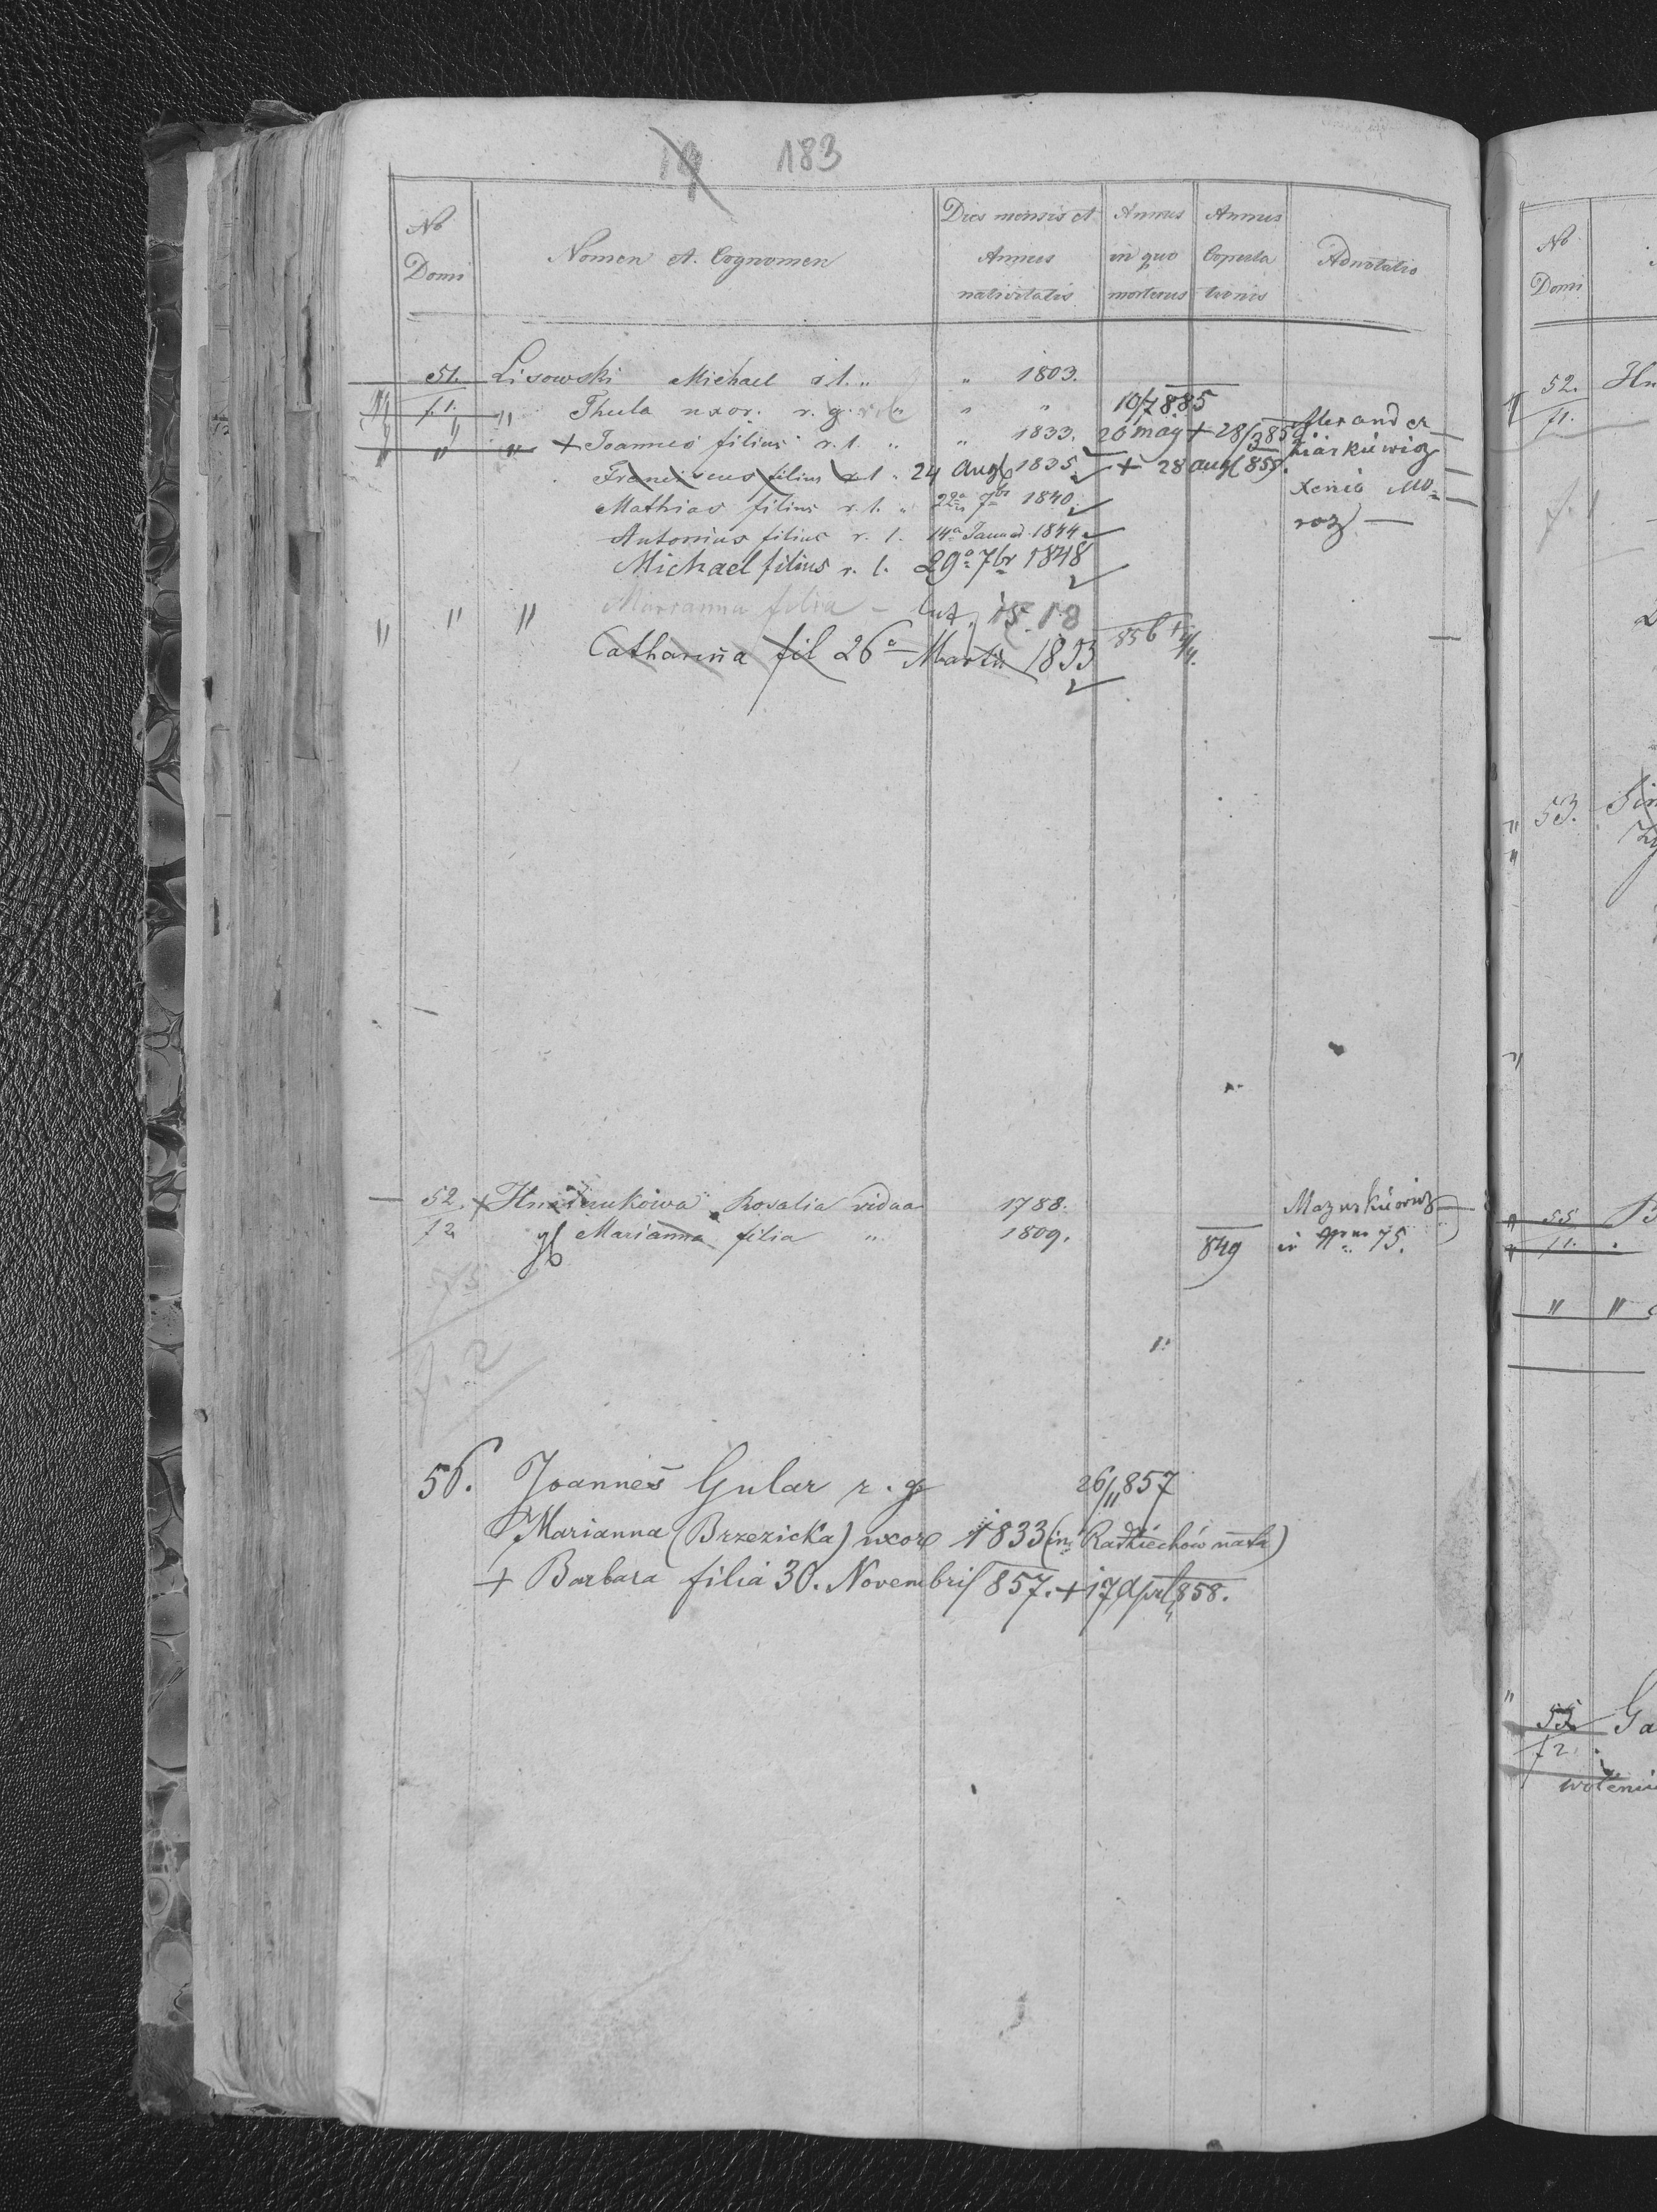 183
No Domi
Nomen et Cognomen
Dies mensis et Annus nativitatis
Annus in quo mortuus
Annus Copulationis
Adnotatio
51. Lisowski Michael r.l. " " 1803.
f.1. " Thecla uxor. r. g. " " 10/7 885
" " + Joannes filius r.l. " " 1833. 20 maj + 28/3 859 Alexander
Franciscus filius r.l. " 24 Aug 1835. + 28 aug 855.
Mathias filius r.l. " 22a 7br 1840. Xenia Mo=
Antonius filius r.l. 14a Januar 1844 roz
Michael filius r.l. 29a 7br 1848
" " " Marianna filia - lut. 18
Catharina fil 26a Martii 1853 856 + 4/4.
52. + Rosalia vidua 1788. Mazurkiewicz
f2 Marianna filia " 1809. 849 in Nro 75.
75
f. 2
56. Joannes Gular r. g 26/11 857
Marianna (Brzezicka) uxor 1833 (in Radziechów nata)
+ Barbara filia 30. Novembris 857. + 17 April 858.
No Domi
52.
f1.
f.1
53.
55
f1.
" "
55
f2.